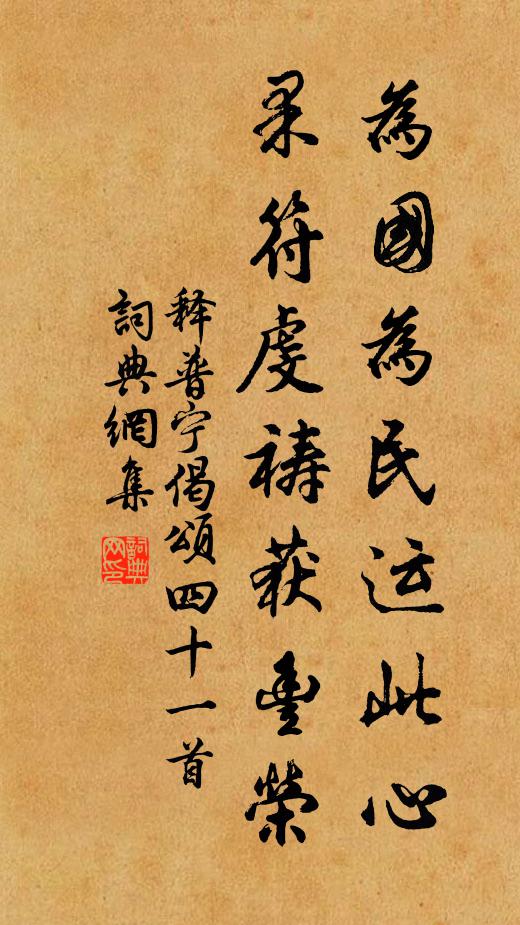 為國為民运此心
果符虔禱获豐榮
释普宁偈頌四十一首
詞典網集
詞典网印